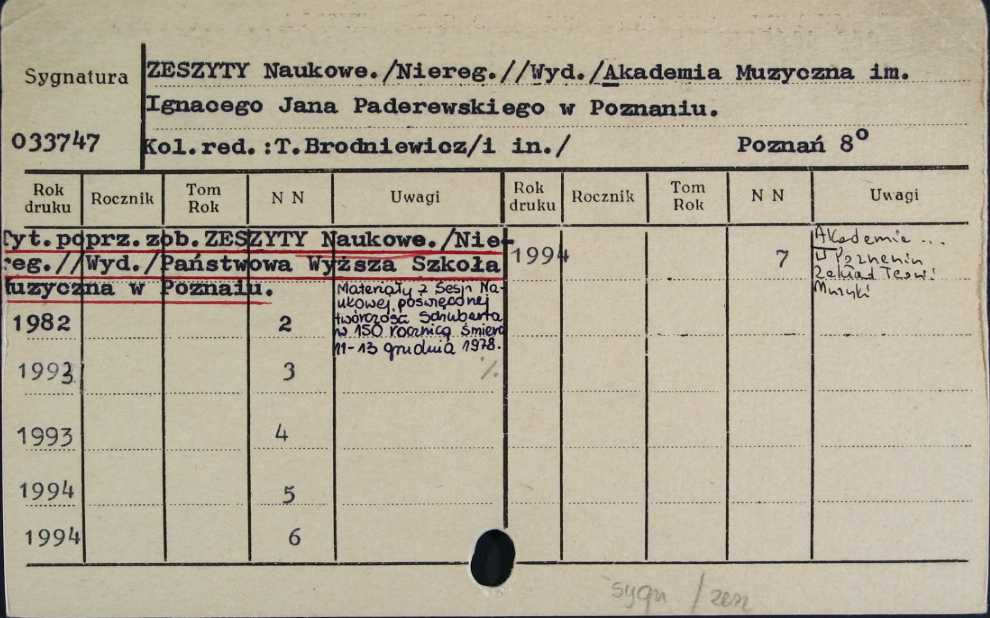 Sygnatura
ZESZYTY Naukowe./Niereg.//Wyd./Akademia Muzyczna im.
Ignacego Jana Paderewskiego w Poznaniu.
033747
Kol.red.:T.Brodniewicz/i in./ Poznań 8º
Rok druku Rocznik Tom Rok N N Uwagi Rok druku Rocznik Tom Rok N N Uwagi
Tyt.poprz.zob.ZESZYTY Naukowe./Nie-
reg.//Wyd./Państwowa Wyższa Szkoła
Muzyczna w Poznaiu.
1982 2
Materiały z Sesji Na-
ukowej poświęconej
twórczość Schuberta
w 150 rocznicę śmierci
11-13 grudnia 1978.
1993 3 %
1993 4
1994 5
1994 6
1994 7
Akademie ...
w Poznaniu
Zakład Teorii
Muzyki
sygn /